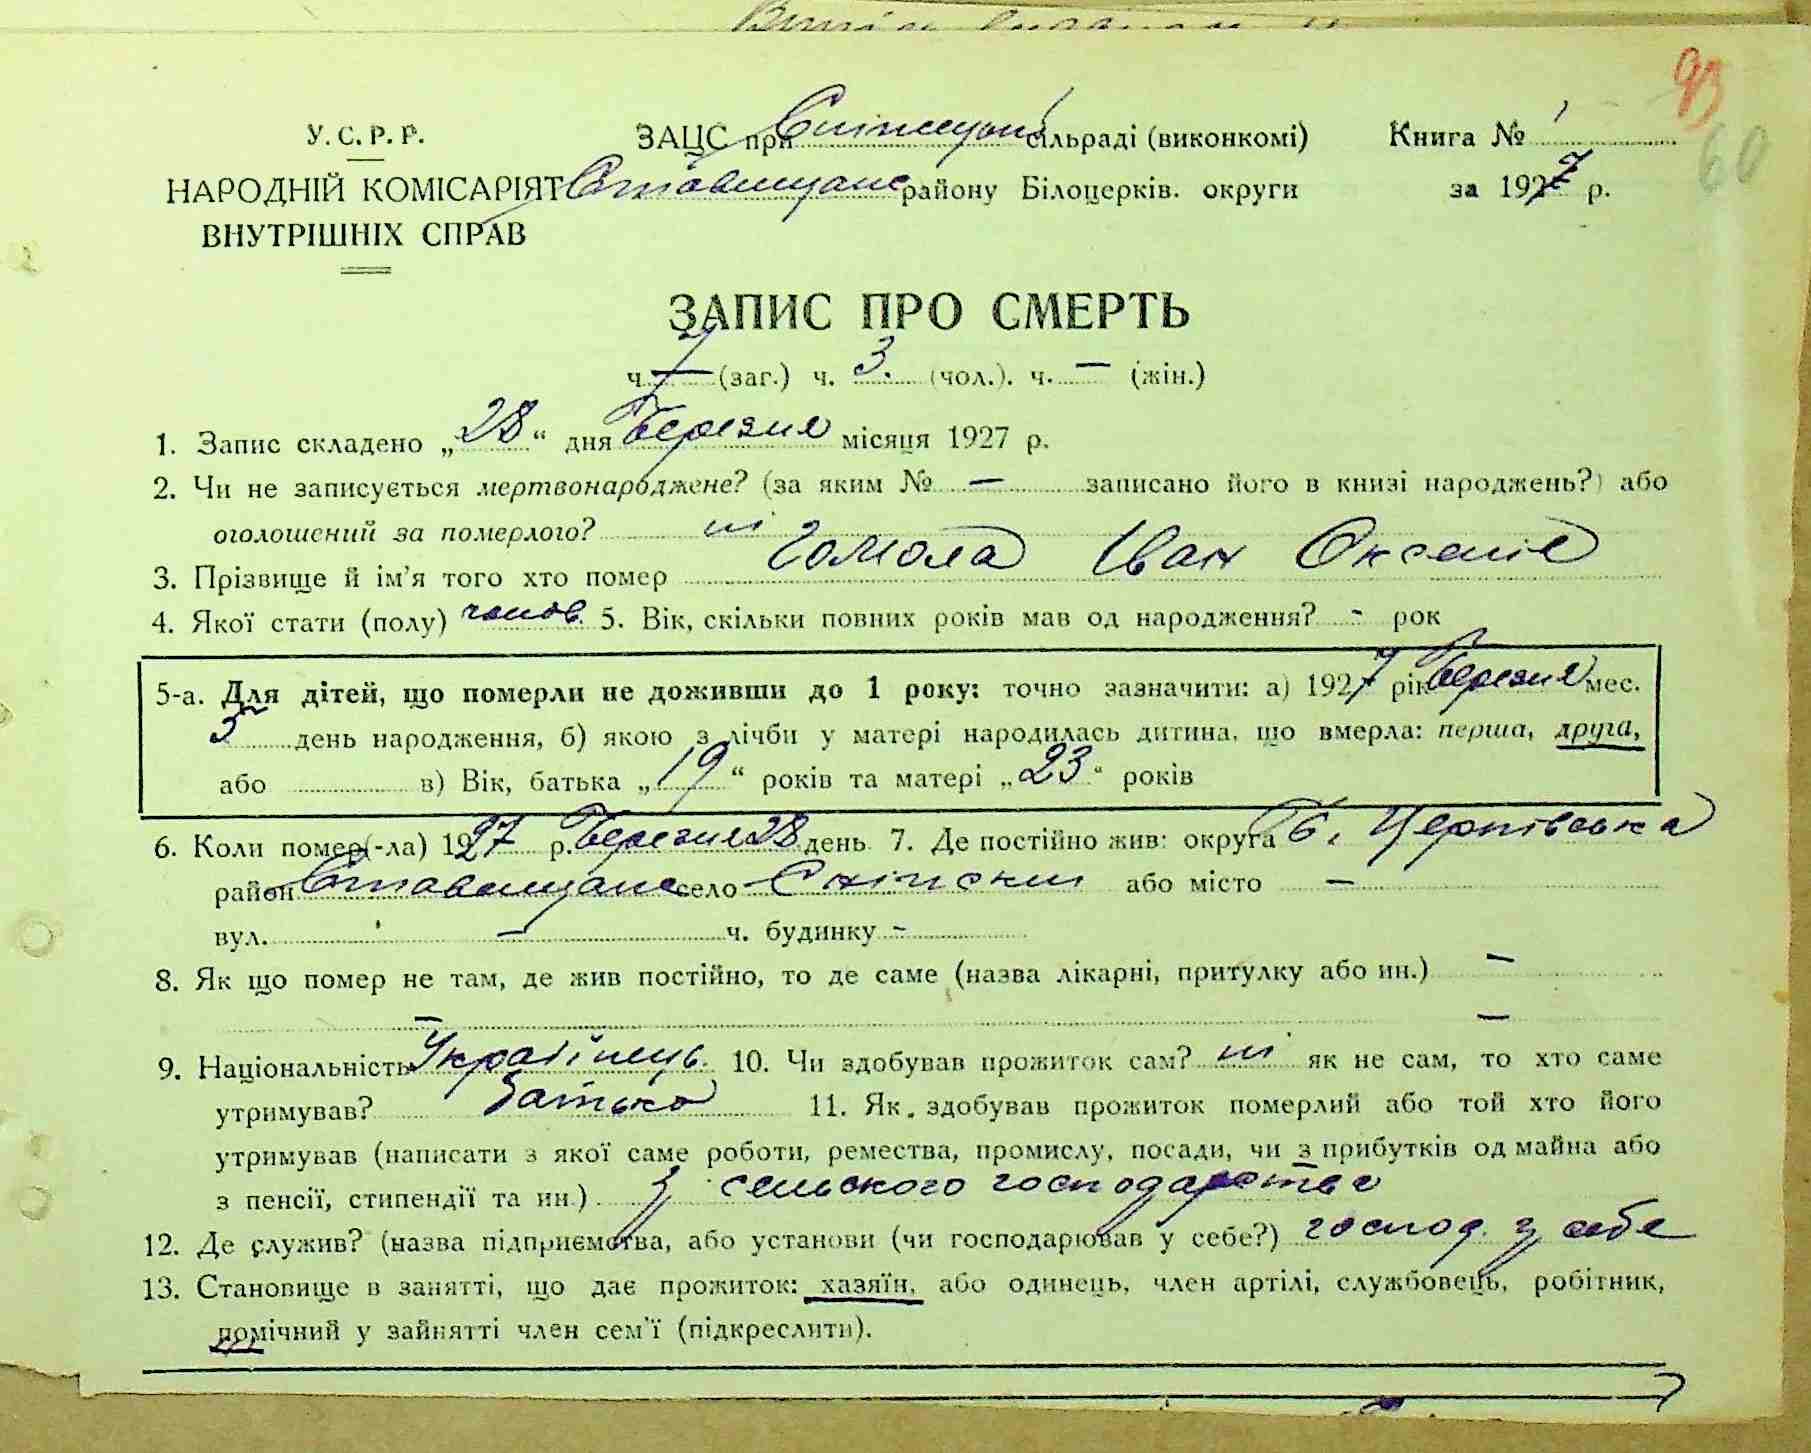 93
60
У. С. Р. Р.
НАРОДНІЙ КОМІСАРІЯТ
ВНУТРІШНІХ СПРАВ
ЗАЦС при сільраді (виконкомі)
Ставищанс району Білоцерків. округи
Книга № 1
за 1927 р.
ЗАПИС ПРО СМЕРТЬ
ч. 7 (заг.) ч. 3. (чол.). ч. — (жін.)
1. Запис складено „28“ дня Березня місяця 1927 р.
2. Чи не записується мертвонароджене? (за яким № — записано його в книзі народжень?) або
оголошений за померлого? ні
3. Прізвище й ім'я того хто помер Гомола Іван Оксенів
4. Якої стати (полу) чолов. 5. Вік, скільки повних років мав од народження? - рок
5-а. Для дітей, що померли не доживши до 1 року: точно зазначити: а) 1927 рік Березня мес.
5 день народження, б) якою з лічби у матері народилась дитина, що вмерла: перша, друга,
або в) Вік, батька „19“ років та матері „23“ років
6. Коли помер(-ла) 1927 р. Березня 28 день 7. Де постійно жив: округа Б. Церківська
район Ставищанс село Снігськи або місто —
вул. — ч. будинку -
8. Як що помер не там, де жив постійно, то де саме (назва лікарні, притулку або ин.) —
— —
9. Національність Українець. 10. Чи здобував прожиток сам? ні як не сам, то хто саме
утримував? батько 11. Як здобував прожиток померлий або той хто його
утримував (написати з якої саме роботи, ремества, промислу, посади, чи з прибутків од майна або
з пенсії, стипендії та ин.) З сельского господарства
12. Де служив? (назва підприємства, або установи (чи господарював у себе?) господ. у себе
13. Становище в занятті, що дає прожиток: хазяїн, або одинець, член артілі, службовець, робітник,
помічний у зайнятті член сем'ї (підкреслити).